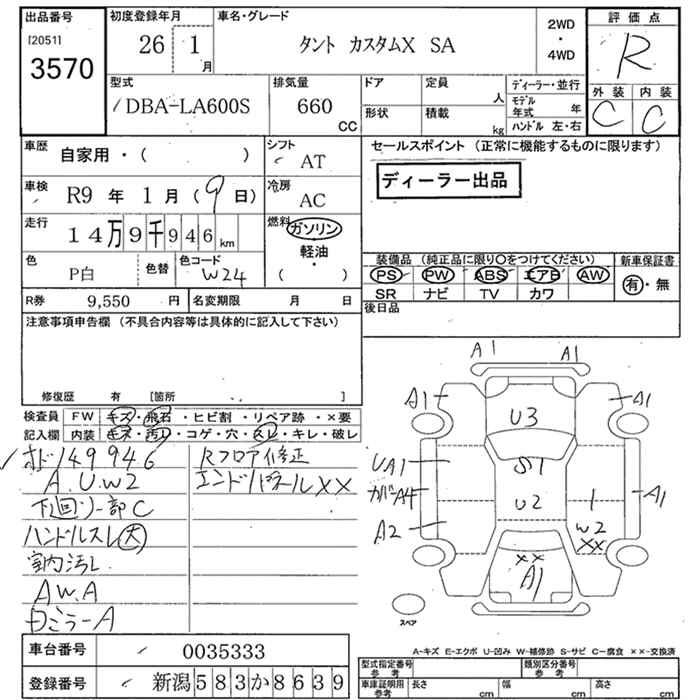 出品番号
[2051]
3570
初度登録年月
26 1 月
車名・グレード
タント カスタムX SA
2WD
・
4WD
評価点
R
外装 内装
C C
型式
DBA-LA600S
排気量
660
CC
ドア
形状
定員
人
積載
kg
ディーラー・並行
モデル
年式 年
ハンドル 左・右
車歴
自家用・( )
シフト
AT
車検
R9 年 1 月 ( 9 日)
冷房
AC
走行
14万9千946 km
燃料
ガソリン
軽油
・
( )
色
P白
色替
色コード
W24
R券 9,550 円
名変期限 月 日
セールスポイント (正常に機能するものに限ります)
ディーラー出品
装備品 (純正品に限り○をつけてください)
新車保証書
PS PW ABS エアB AW
有・無
SR ナビ TV カワ
後日品
注意事項申告欄 (不具合内容等は具体的に記入して下さい)
修復歴 有 [箇所 ]
検査員
記入欄
FW キズ・飛石・ヒビ割・リペア跡・×要
内装 キズ・汚れ・コゲ・穴・スレ・キレ・破レ
オド149946
A.U.W2
下回リ一部C
ハンドルスレ大
室内汚レ
AW.A
Rフロア修正
エンドパネルXX
A1 A1
A1 U3 A1
UA1 S1
カバーA4 U2 1 A1
A2 W2
XX
XX
A1
スペア
A-キズ E-エクボ U-凹み W-補修跡 S-サビ C-腐食 ××-交換済
車台番号
0035333
登録番号
新潟583か8639
型式指定番号
参考
類別区分番号
参考
車庫証明用
参考
長さ cm 幅 cm 高さ cm